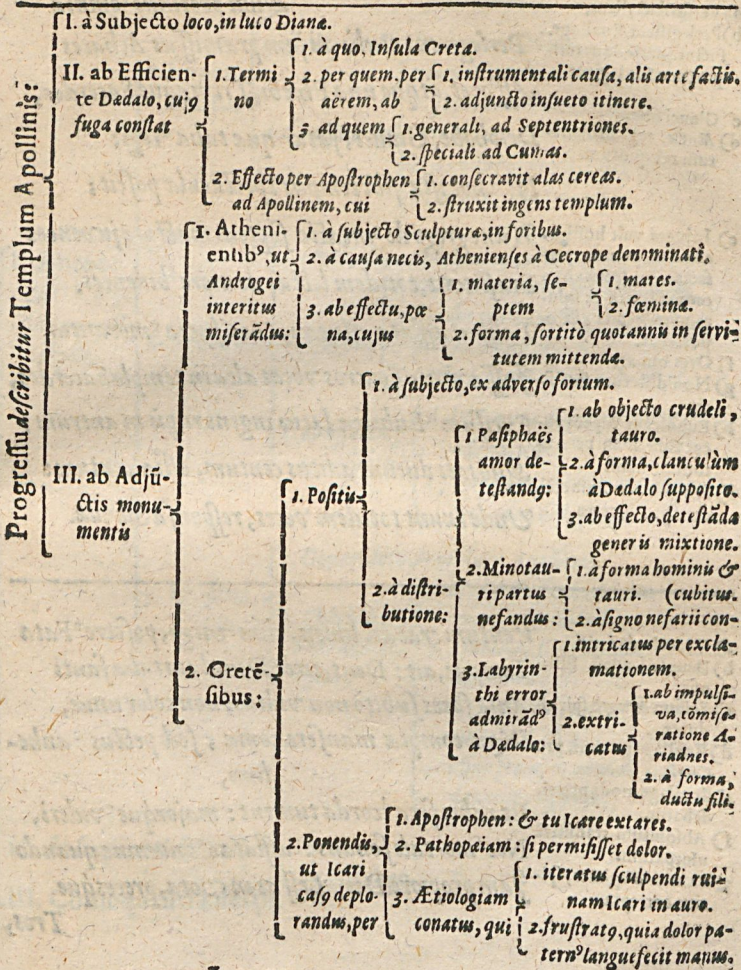 Progressu describitur Templum Apollinis:
I. à Subjecto loco, in luco Dianæ.
II. ab Efficien-
te Dædalo, cujꝰ
fuga constat
1. Termi
no
1. à quo. Insula Creta.
2. per quem. per
aërem, ab
1. instrumentali causa, alis arte factis.
2. adjuncto insueto itinere.
3. ad quem
1. generali, ad Septentriones.
2. speciali ad Cumas.
2. Effecto per Apostrophen
ad Apollinem, cui
1. consecravit alas cereas.
2. struxit ingens templum.
III. ab Adjū-
ctis monu-
mentis
1. Atheni-
ensibꝰ, ut
Androgei
interitus
miserādus:
1. à subjecto Sculpturæ, in foribus.
2. à causa necis, Athenienses à Cecrope denominati.
3. ab effectu, pœ
na, cujus
1. materia, se-
ptem
1. mares.
2. fœminæ.
2. forma, sortitò quotannis in servi-
tutem mittendæ.
2. Cretē-
sibus:
1. Positis
1. à subjecto, ex adverso forium.
2. à distri-
butione:
1 Pasiphaës
amor de-
testandꝰ:
1. ab objecto crudeli,
tauro.
2. à forma, clanculùm
à Dædalo supposito.
3. ab effecto, detestāda
generis mixtione.
2. Minotau-
ri partus
nefandus:
1. à forma hominis &
tauri. (cubitus.
2. à signo nefarii con-
3. Labyrin-
thi error
admirādꝰ
à Dædalo:
1. intricatus per excla-
mationem.
2. extri-
catus
1. ab impulsi-
va, cōmise-
ratione A-
riadnes.
2. à forma,
ductu fili.
2. Ponendis,
ut Icari
casꝰ deplo-
randus, per
1. Apostrophen: & tu Icare extares.
2. Pathopœiam: si permisisset dolor.
3. Ætiologiam
conatus, qui
1. iteratus sculpendi rui-
nam Icari in auro.
2. frustratꝰ, quia dolor pa-
ternꝰ languefecit manus.